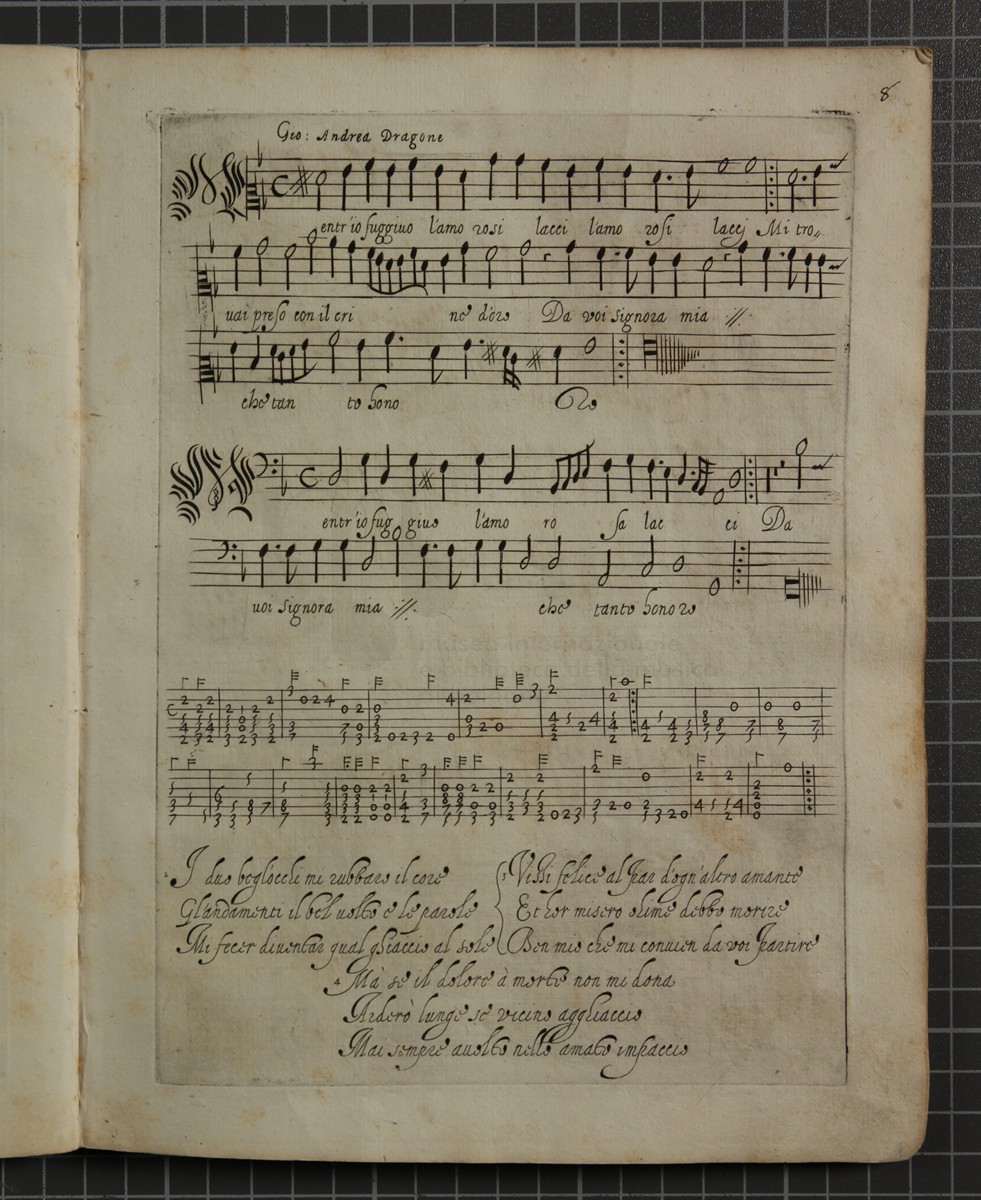 8
Gio: Andrea Dragone
Mentr'io fuggiuo l'amo rosi lacci l'amo rosi lacci Mi tro
uai preso con il cri ne d'oro Da voi signora mia //.
che tan to hono Ro
Mentr'io fug giuo l'amo ro sa lac ci Da
uoi signora mia //. che tanto honoro
I duo begl'occhi mi rubbaro il core
Gl'andamenti il bel uolto e le parole
Mi fecer diuentar qual ghiaccio al sole
3 Vissi felice al par d'ogn'altro amante
Et hor misero olime debbo morire
Ben mio che mi conuien da voi partire
4 Mà se il dolore à morte non mi dona
Arderò lunge se vicino agghiaccio
Mai sempre auolto nello amato impaccio
museo internazionale
e biblioteca della musica